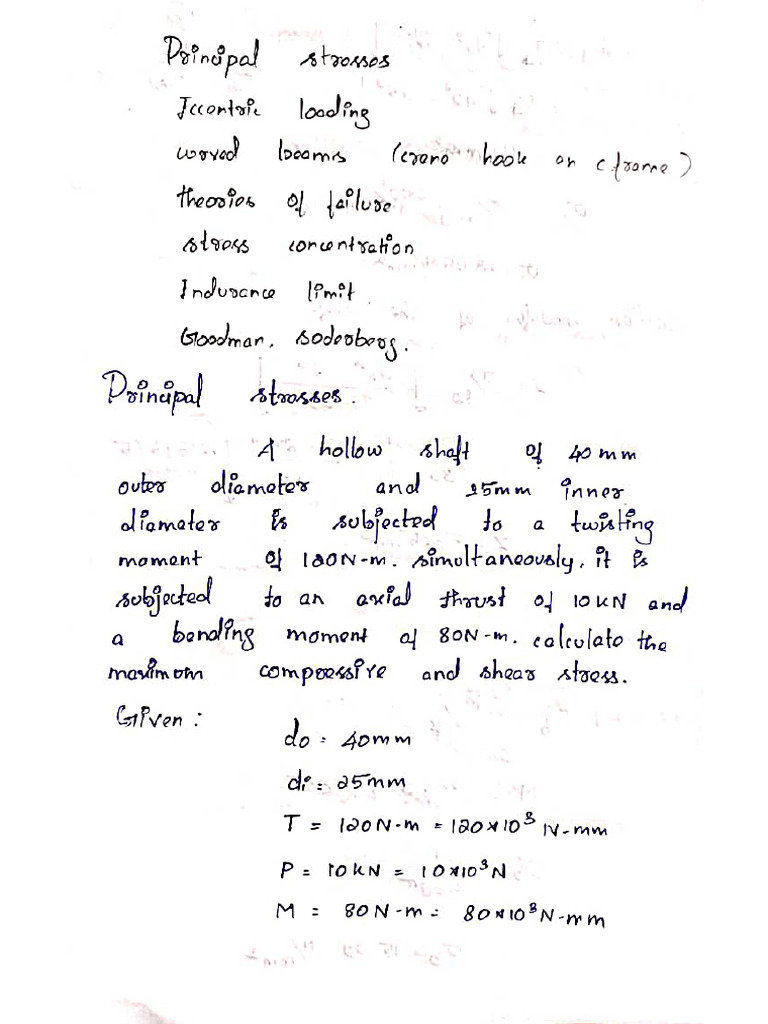 Principal stresses
Eccentric loading
curved beams (crane hook or c frame)
theories of failure
stress concentration
Endurance limit.
Goodman, soderberg.
Principal stresses.
A hollow shaft of 40 mm
outer diameter and 25mm inner
diameter is subjected to a twisting
moment of 120N-m. simultaneously, it is
subjected to an axial thrust of 10 kN and
a bending moment of 80N-m. calculate the
maximum compressive and shear stress.
Given :
do = 40mm
di = 25mm
T = 120N-m = 120×10³ N-mm
P = 10 kN = 10×10³N
M = 80N-m = 80×10³N-mm